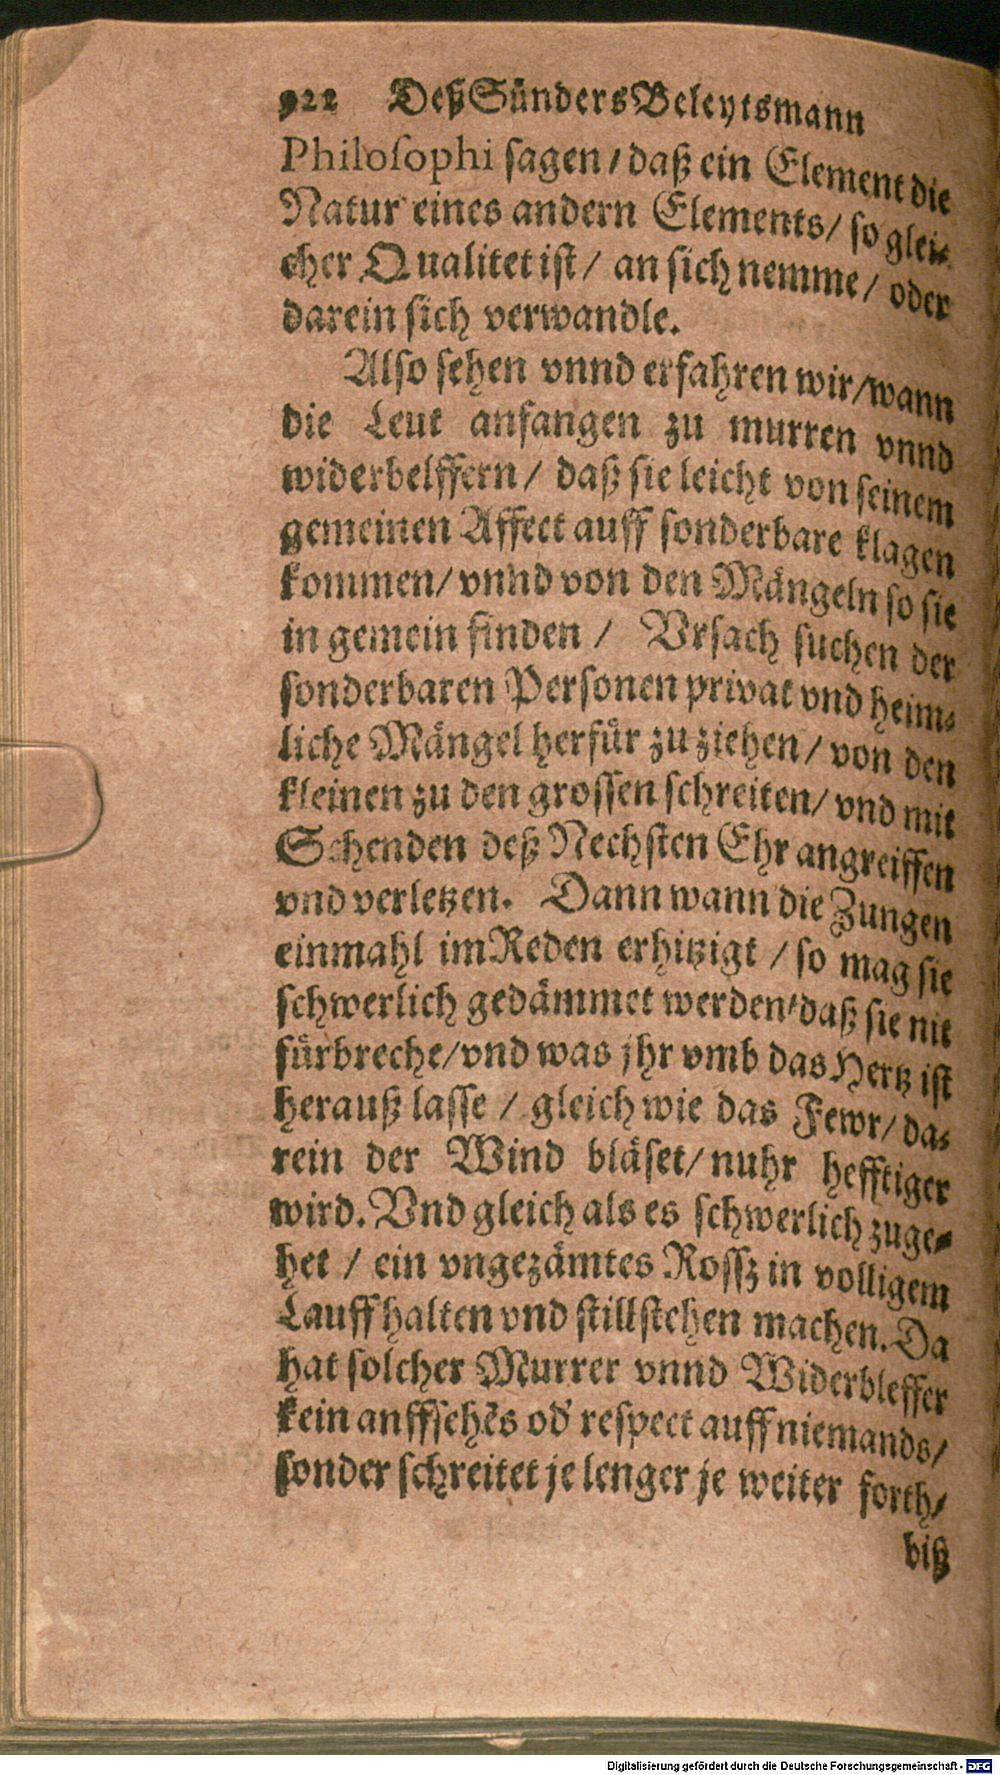 922 Deß Sünders Beleytsmann
Philosophi sagen / daß ein Element die
Natur eines andern Elements / so glei-
cher Qualitet ist / an sich nemme / oder
darein sich verwandle.
Also sehen vnnd erfahren wir / wann
die Leut anfangen zu murren vnnd
widerbelffern / daß sie leicht von seinem
gemeinen Affect auff sonderbare klagen
kommen / vnnd von den Mängeln so sie
in gemein finden / Vrsach suchen der
sonderbaren Personen privat vnd heim-
liche Mängel herfür zu ziehen / von den
kleinen zu den grossen schreiten / vnd mit
Schenden deß Nechsten Ehr angreiffen
vnd verletzen. Dann wann die Zungen
einmahl im Reden erhitzigt / so mag sie
schwerlich gedämmet werden / daß sie nit
fürbreche / vnd was jhr vmb das Hertz ist
herauß lasse / gleich wie das Fewr / da-
rein der Wind bläset / nuhr hefftiger
wird. Vnd gleich als es schwerlich zuge-
het / ein vngezämtes Rossz in volligem
Lauff halten vnd stillstehen machen. Da
hat solcher Murrer vnnd Widerbleffer
kein anffsehēs od' respect auff niemands /
sonder schreitet je lenger je weiter forth /
biß
Digitalisierung gefördert durch die Deutsche Forschungsgemeinschaft - DFG